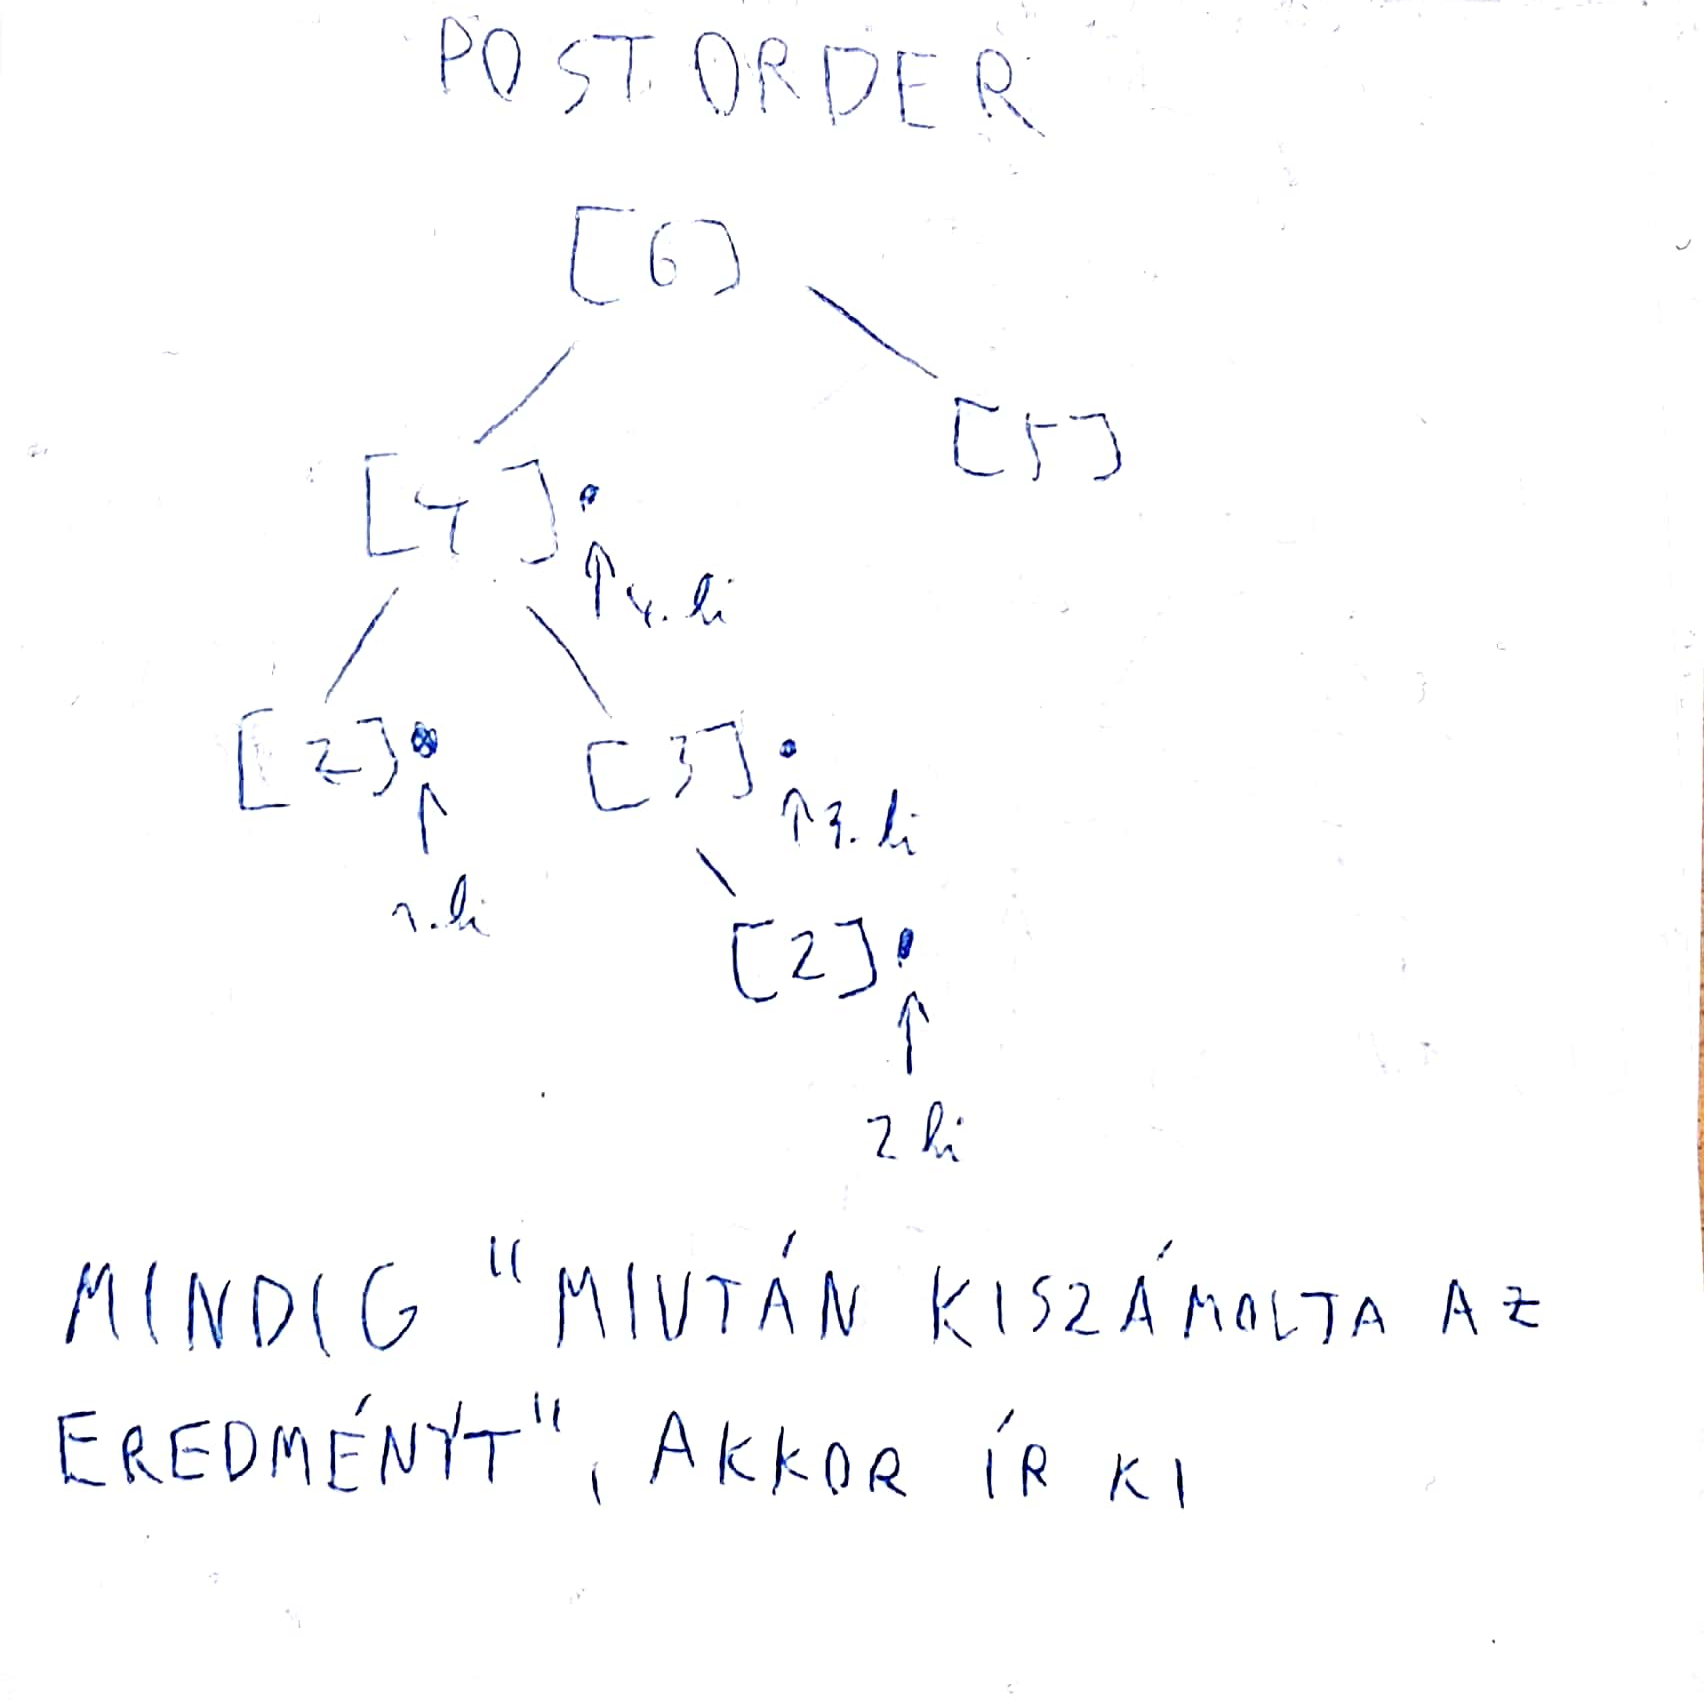 POSTORDER
[6]
[5]
[4]
4. ki
[2] [3]
3. ki
1. ki
[2]
2 ki
MINDIG "MIUTÁN KISZÁMOLTA AZ
EREDMÉNYT", AKKOR ÍR KI